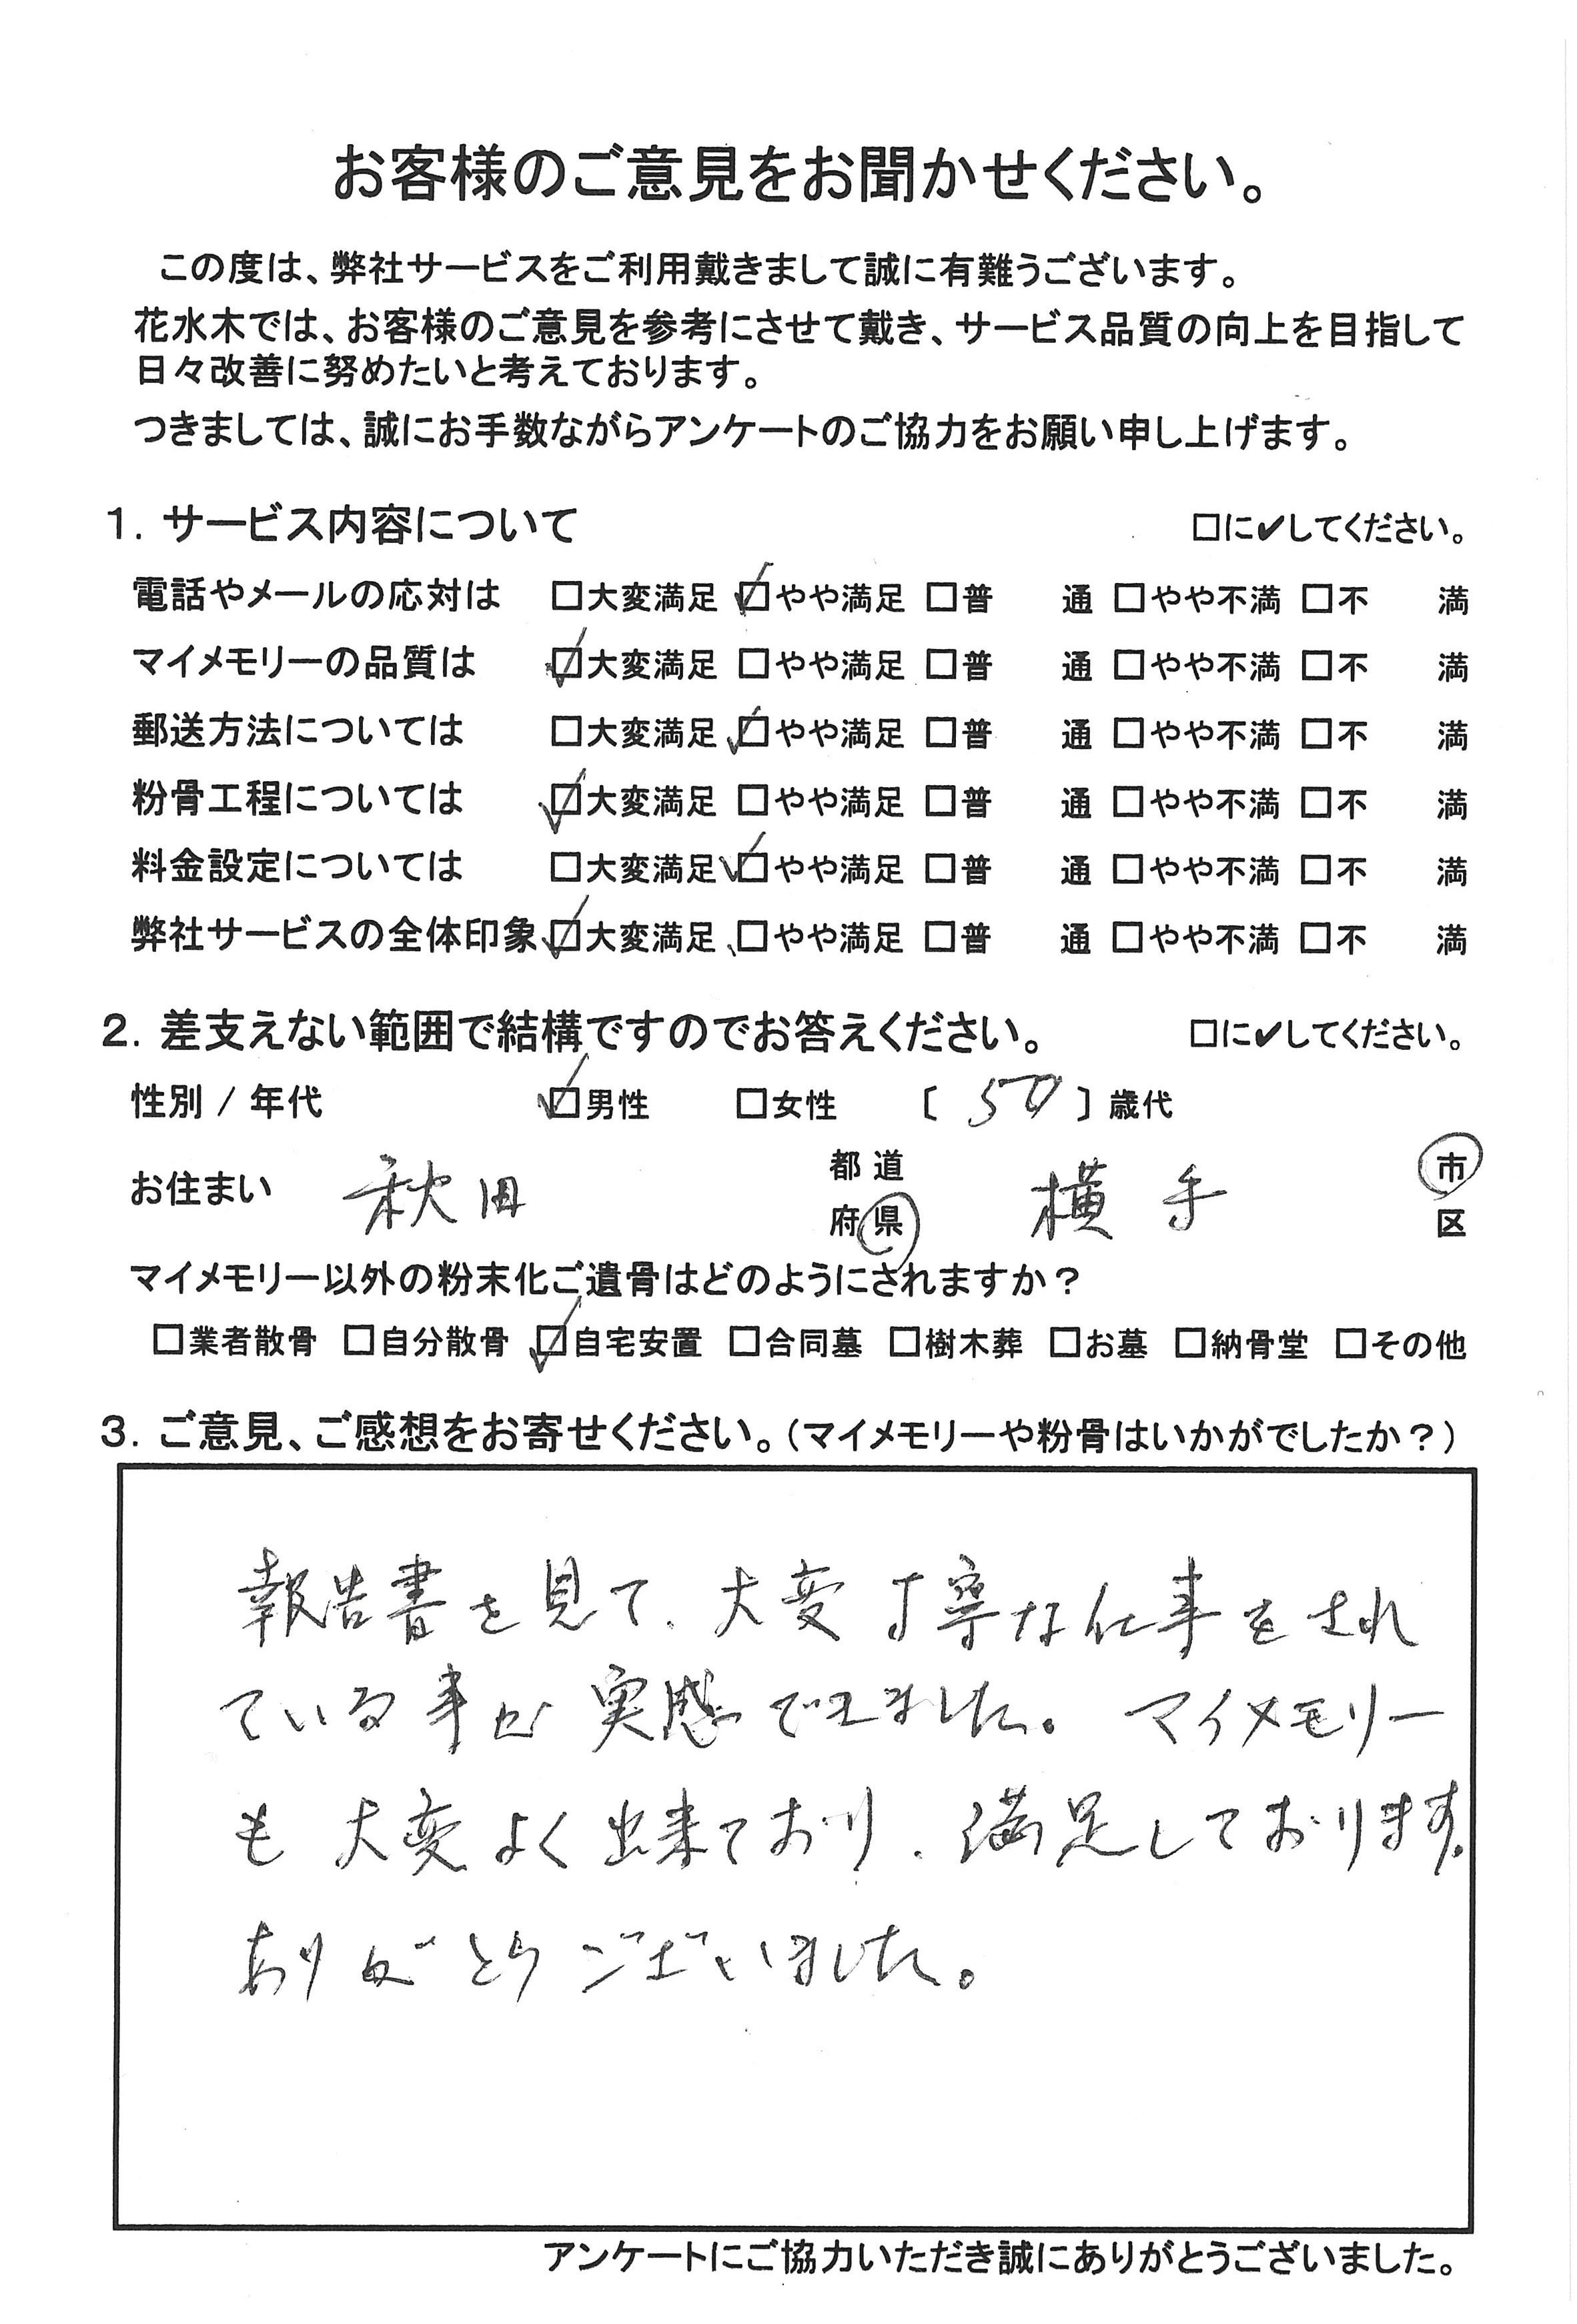 お客様のご意見をお聞かせください。
この度は、弊社サービスをご利用戴きまして誠に有難うございます。
花水木では、お客様のご意見を参考にさせて戴き、サービス品質の向上を目指して
日々改善に努めたいと考えております。
つきましては、誠にお手数ながらアンケートのご協力をお願い申し上げます。
1. サービス内容について □に✔してください。
電話やメールの応対は □大変満足 ☑やや満足 □普 通 □やや不満 □不 満
マイメモリーの品質は ☑大変満足 □やや満足 □普 通 □やや不満 □不 満
郵送方法については □大変満足 ☑やや満足 □普 通 □やや不満 □不 満
粉骨工程については ☑大変満足 □やや満足 □普 通 □やや不満 □不 満
料金設定については □大変満足 ☑やや満足 □普 通 □やや不満 □不 満
弊社サービスの全体印象 ☑大変満足 □やや満足 □普 通 □やや不満 □不 満
2. 差支えない範囲で結構ですのでお答えください。 □に✔してください。
性別 / 年代 ☑男性 □女性 〔 50 〕歳代
お住まい 秋田 都道府県 横手 市区
マイメモリー以外の粉末化ご遺骨はどのようにされますか？
□業者散骨 □自分散骨 ☑自宅安置 □合同墓 □樹木葬 □お墓 □納骨堂 □その他
3. ご意見、ご感想をお寄せください。（マイメモリーや粉骨はいかがでしたか？）
報告書を見て、大変丁寧な仕事をされ
ている事が実感できました。マイメモリー
も大変よく出来ており、満足しております。
ありがとうございました。
アンケートにご協力いただき誠にありがとうございました。